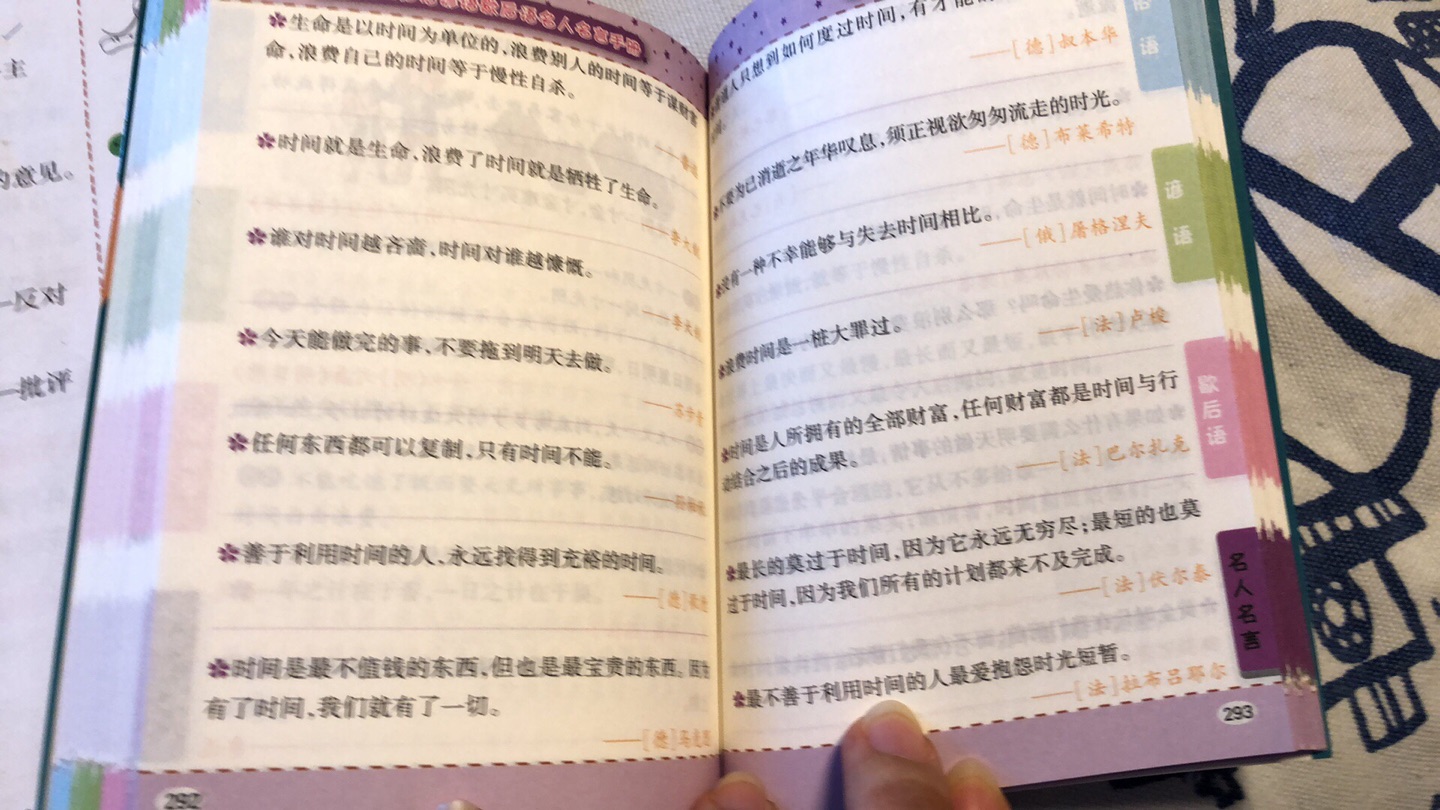 主
的意见。
—反对
—批评
后语名人名言手册
生命是以时间为单位的,浪费别人的时间等于谋财害
命,浪费自己的时间等于慢性自杀。
时间就是生命,浪费了时间就是牺牲了生命。
谁对时间越吝啬,时间对谁越慷慨。
今天能做完的事,不要拖到明天去做。
任何东西都可以复制,只有时间不能。
善于利用时间的人,永远找得到充裕的时间。
——[德]
时间是最不值钱的东西,但也是最宝贵的东西。因为
有了时间,我们就有了一切。
——[德]马克思
292
通人只想到如何度过时间,有才能
——[德]叔本华
不要为已消逝之年华叹息,须正视欲匆匆流走的时光。
——[德]布莱希特
没有一种不幸能够与失去时间相比。
——[俄]屠格涅夫
浪费时间是一桩大罪过。
——[法]卢梭
时间是人所拥有的全部财富,任何财富都是时间与行
动结合之后的成果。
——[法]巴尔扎克
最长的莫过于时间,因为它永远无穷尽;最短的也莫
过于时间,因为我们所有的计划都来不及完成。
——[法]伏尔泰
最不善于利用时间的人最爱抱怨时光短暂。
——[法]拉布吕耶尔
293
俗语
谚语
歇后语
名人名言